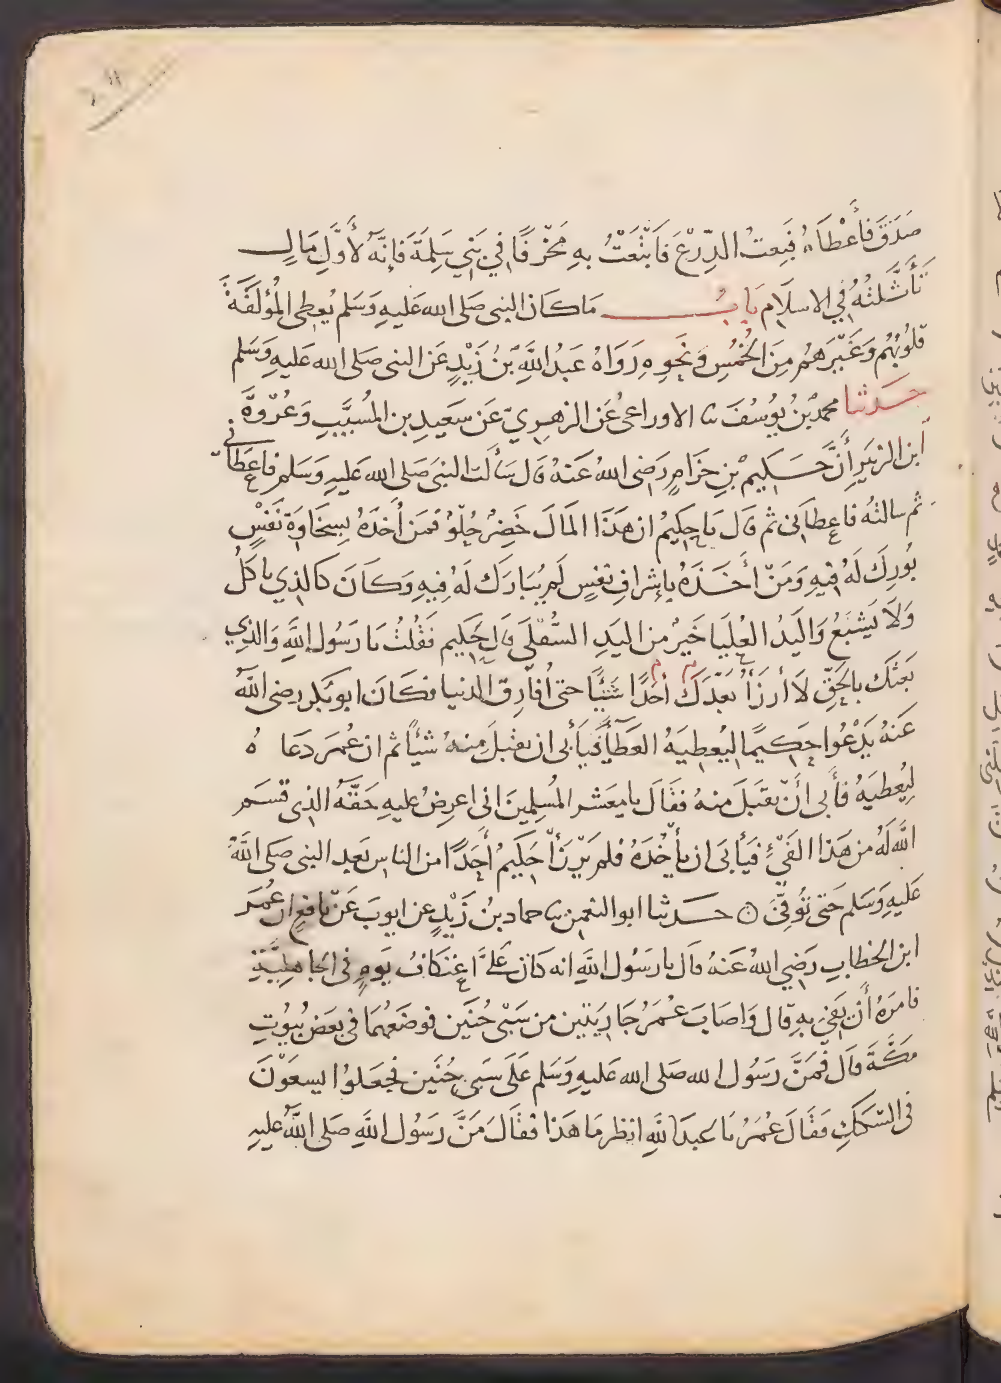 صَدَقَ فَأَعْطَاهُ فَبِعتُ الدِّرْعَ فَابْتَعْتُ بِهِ مَخْرَفًا فِي بَنِي سَلِمَةَ فَإِنَّهُ لأَوَّلُ مَالٍ
تَأَثَّلْتُهُ فِي الاسلَامِ بَابُ مَا كَانَ النبى صَلى الله عَليهِ وَسَلم يُعطِى الْمُؤَلَّفَةَ
قلُوبُهُم وَغَيْرَهُم مِنَ الخُمُسِ وَنَحوِهِ رَوَاهُ عَبدُ اللَّهِ بْنُ زَيْدٍ عَن النبى صَلى الله عَليهِ وَسَلم
حَدثنا محمد بْنُ يُوسُفَ ثنا الاوزاعىُّ عَن الزهرِيّ عَن سَعِيدِ بن المُسَيَّبِ وَعُرْوَةَ
ابن الزبَيرِ أَنَّ حَكِيمْ بْنِ حِزَامٍ رَضِى اللهُ عَنهُ قَال سَأَلتُ النبىَ صَلى الله عَليهِ وَسَلم فاعطَانى
ثم سالتهُ فاعطانى ثم قال يَا حكِيمُ ان هَذَا المَالَ خَضِرٌ حُلْوٌ فمَن أَخَذَهُ بِسَخَاوَةِ نَفْسٍ
بُورِكَ لَهُ فِيهِ وَمَنْ أَخَذَهُ بِإِشرَافِ نفسٍ لَم يُبَارَك لَهُ فِيهِ وَكَانَ كالذِي يَاكلُ
وَلَا يَشبَعُ وَاليَدُ العُليَا خَيرٌ من اليَدِ السُّفلَى قال حَكِيم فَقُلتُ يَا رَسُول اللَّهِ وَالذِي
بَعثَك بالحَقِّ لَا أرزَأُ بَعْدَكَ أحَدًا شَيْئًا حتى أُفَارِقَ الدنيا فكَانَ ابو بكر رضى اللهُ
عَنهُ يَدْعُوا حَكِيمًا لِيُعطِيَهُ العَطَاءَ فَيَأبَى ان يقبَلَ مِنهُ شَيْأً ثم ان عُمَر دَعَا هُ
لِيُعطيَهُ فأَبى أَنْ يَقبَلَ منهُ فقَالَ يا مَعشر المُسلِمينَ انى اعرِضُ عليهِ حَقَّهُ الذِى قسَم
اللَّه لَهُ من هَذا الفَيْءِ فيَأبَى ان يَأْخُذَهُ فلم يَرْزَأْ حَكِيمُ أَحَدًا من الناس بَعد النبى صَلى اللهُ
عَليهِ وَسَلم حَتى تُوُفِّىَ ۞ حَدثنا ابو النعمن ثنا حماد بنُ زَيْدٍ عن ايوبَ عَنْ نَافعٍ ان عُمَر
ابن الخطابِ رَضِى اللهُ عَنهُ قال يا رَسُول اللَّهِ انه كَان عَلَىَّ اعتكافُ يَومٍ فى الجاهِليَّةِ
فامَرَهُ أَنْ يَفِىَ بِهِ قال وَاصَابَ عُمَرُ جَاريَتين من سَبْىِ حُنَين فوضَعَهُمَا فى بَعضِ بُيوُتِ
مَكَّةَ قال فَمَنَّ رَسُول الله صَلى الله عَليهِ وَسَلم عَلَى سَبىِ حُنَين فجعَلوُا يَسعَوْنَ
فى السّكَكِ فَقَالَ عُمَرُ يَا عَبدَ اللَّهِ انظر مَا هَذَا فقَالَ مَنَّ رَسُول اللَّهِ صَلى اللَّهُ عليهِ